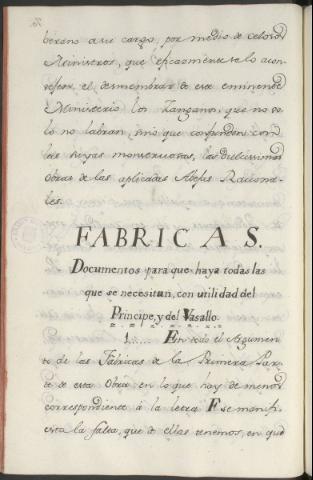 berano a su cargo, por medio de celosos
Ministros, que eficazmente
el desmembrar de este eminente
Ministerio los Zanganos, que no so
lo no labran, sino que confunden con
las suyas monstruosas, las
Obras de las aplicadas Abejas Raciona-
les.
FABRICAS.
Documentos para que haya todas las
que se necesitan, con utilidad del
Principe, y del Vasallo.
1...... En todo el Argumen-
to de las Fabricas de la Primera Par-
te de esta Obra en lo que hay de menos
correspondiente á la letra F se manifi-
esta la falta, que de ellas tenemos, en que